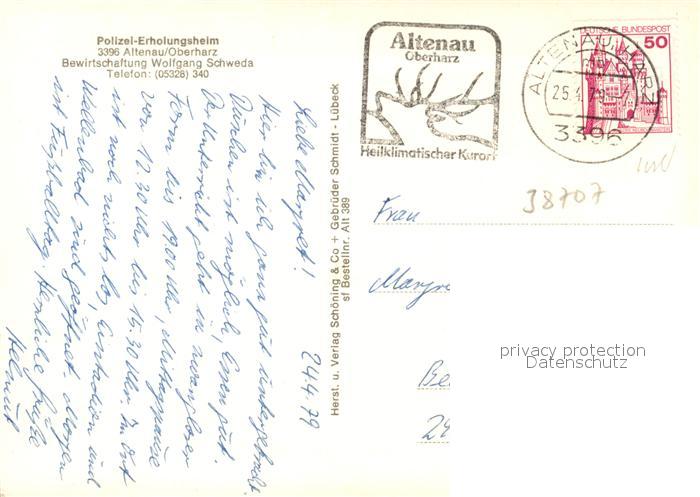 Polizei-Erholungsheim
3396 Altenau/Oberharz
Bewirtschaftung Wolfgang Schweda
Telefon: (05328) 340
24.4.79
Liebe Margret!
Hier bin ich ganz gut untergebracht.
Duschen ist möglich, Essen gut.
Der Unterricht geht in zwangloser
Form bis 19.00 Uhr, Mittagspause
von 12.30 Uhr bis 15.30 Uhr. Im Ort
ist noch nichts los, Eisstadion und
Wellenbad sind geöffnet. Morgen
ist Fußballtag. Herzliche Grüße
Helmut
Herst. u. Verlag Schöning & Co + Gebrüder Schmidt - Lübeck
sf Bestellnr. Alt 389
Altenau
Oberharz
Heilklimatischer Kurort
ALTENAU, OBERHARZ
25.4.79
3396
DEUTSCHE BUNDESPOST
50
38707
Frau
Margre
Be
29
privacy protection
Datenschutz